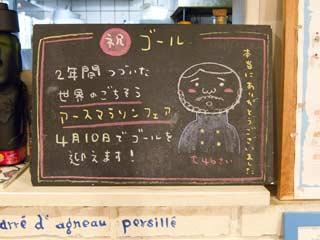 祝 ゴール
2年間つづいた
世界のごちそう
アースマラソンフェア
4月10日でゴールを
迎えます!
本当にありがとうございました
arré d'agneau persillé